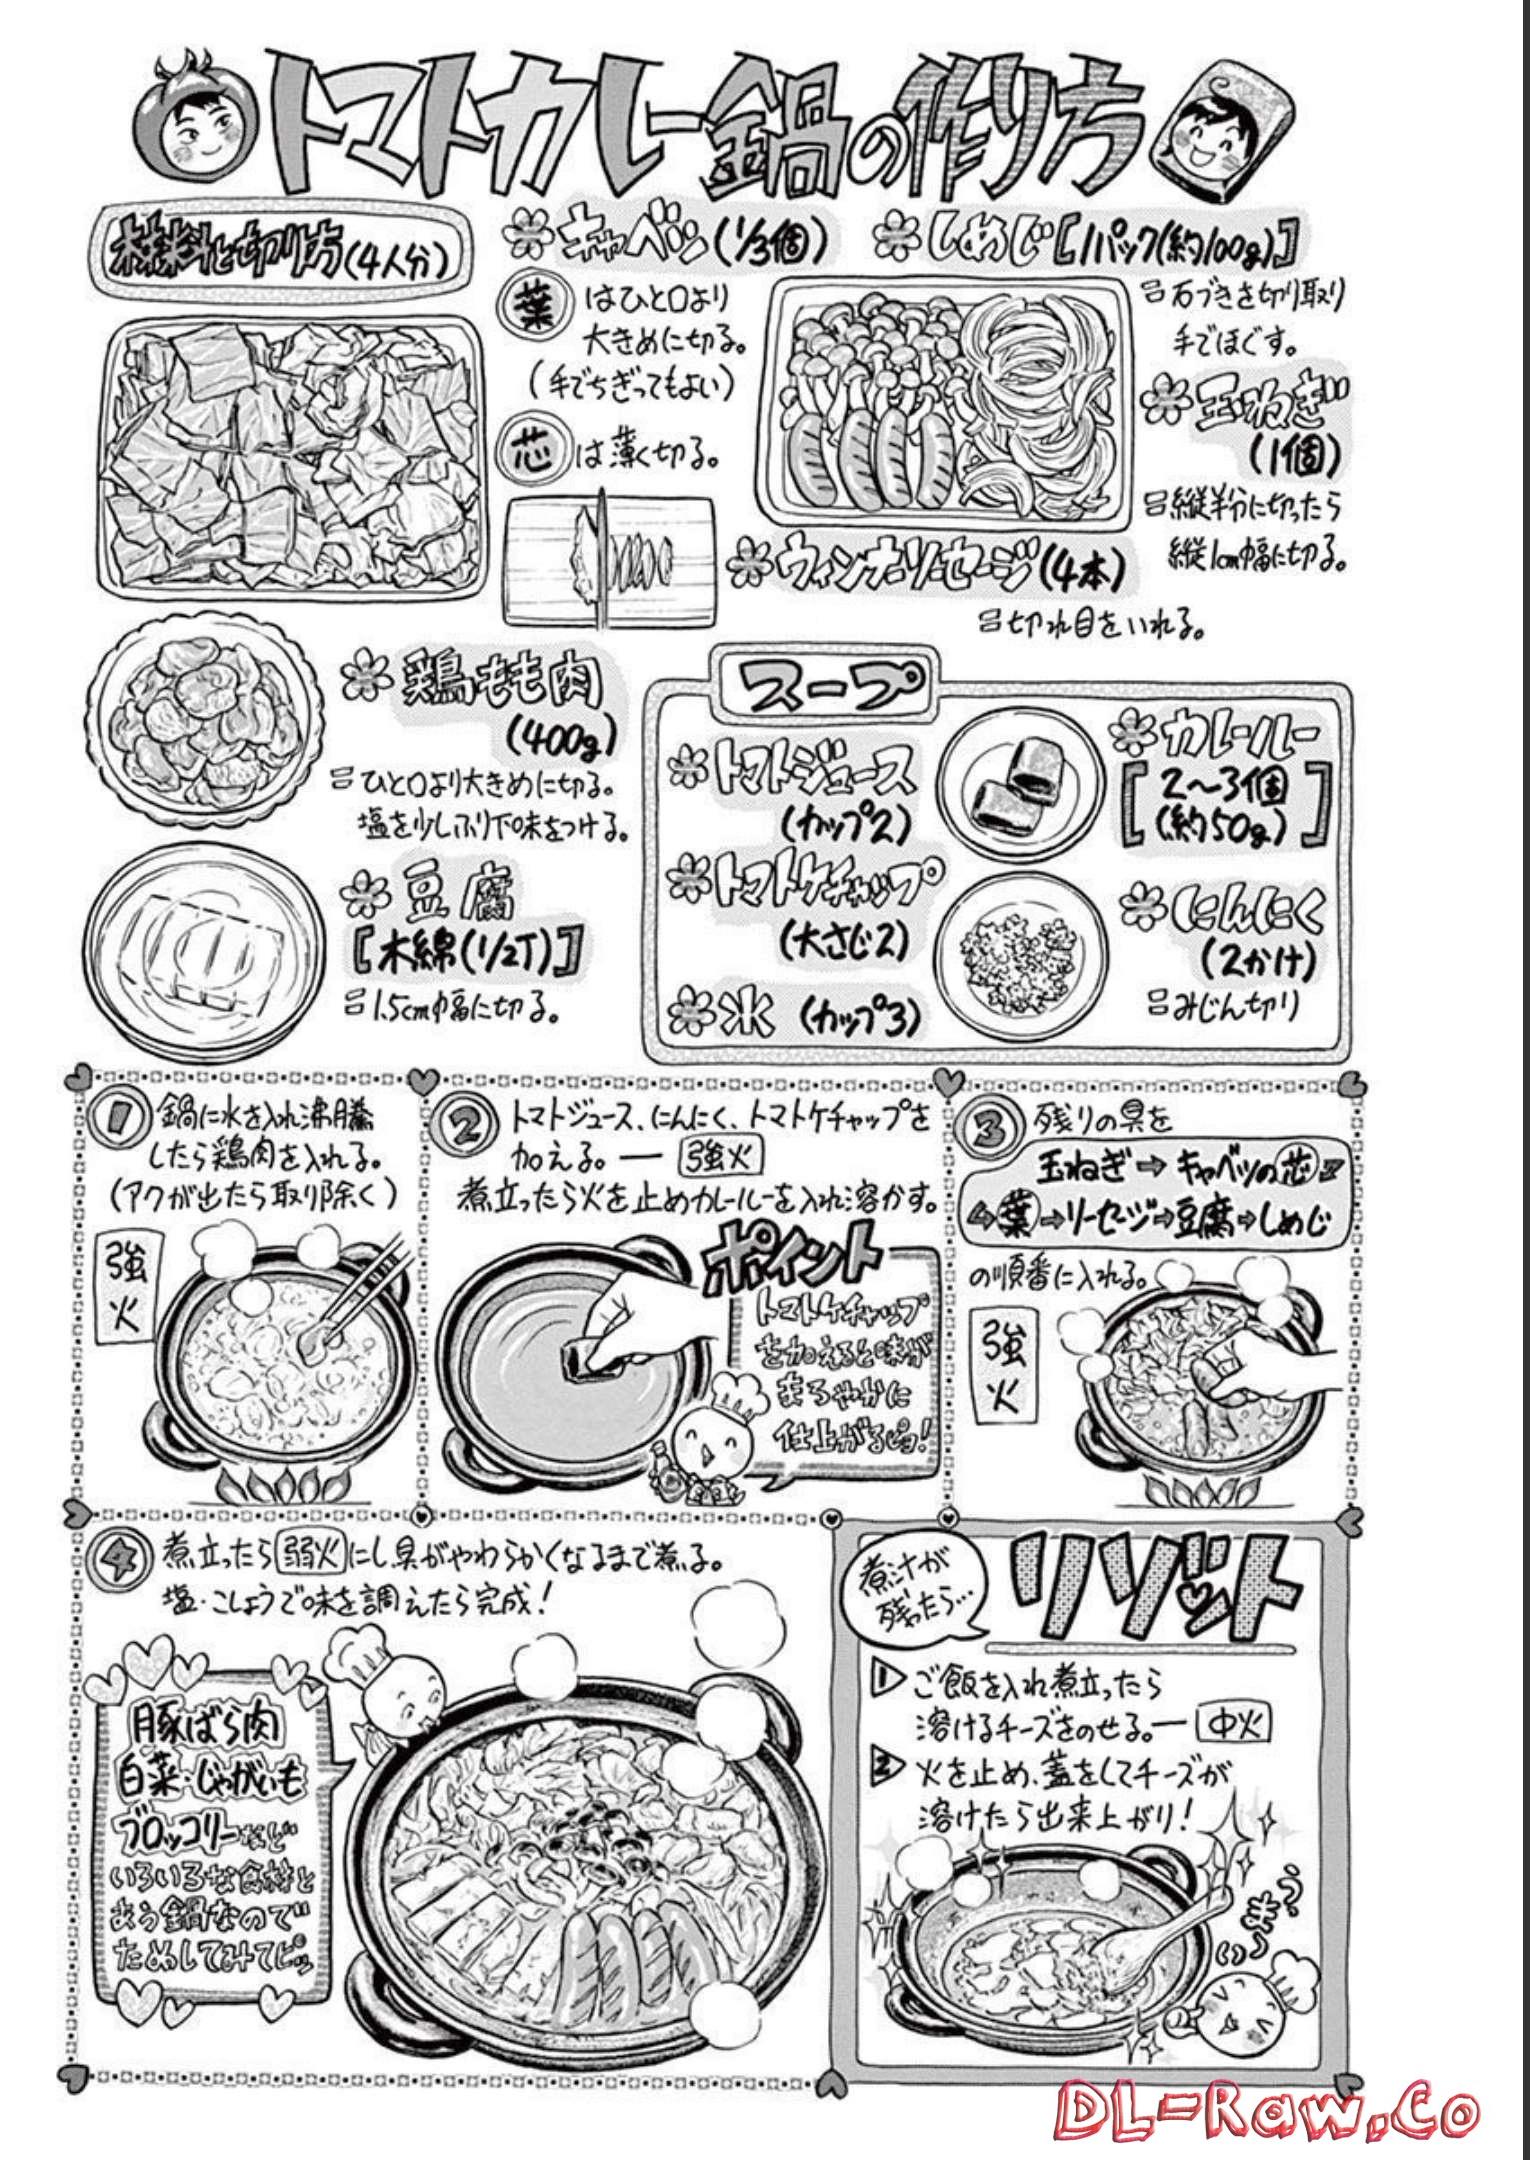 トマトカレー鍋の作り方
材料と切り方(4人分)
＊キャベツ(1/3個)
葉はひと口より
大きめに切る。
(手でちぎってもよい)
芯は薄く切る。
＊しめじ[1パック(約100g)]
石づきを切り取り
手でほぐす。
＊玉ねぎ
(1個)
縦半分に切ったら
縦1cm幅に切る。
＊ウィンナーソーセージ(4本)
切れ目をいれる。
＊鶏もも肉
(400g)
ひと口より大きめに切る。
塩を少しふり下味をつける。
＊豆腐
[木綿(1/2丁)]
1.5cm幅に切る。
スープ
＊トマトジュース
(カップ2)
＊トマトケチャップ
(大さじ2)
＊水 (カップ3)
＊カレールー
[2〜3個
(約50g)]
＊にんにく
(2かけ)
みじん切り
1 鍋に水を入れ沸騰
したら鶏肉を入れる。
(アクが出たら取り除く)
強火
2 トマトジュース、にんにく、トマトケチャップを
加える。ー 強火
煮立ったら火を止めカレールーを入れ溶かす。
ポイント
トマトケチャップ
を加えると味が
まろやかに
仕上がるピヨ!
3 残りの具を
玉ねぎ⇒キャベツの芯⇒
⇒葉⇒ソーセージ⇒豆腐⇒しめじ
の順番に入れる。
強火
4 煮立ったら弱火にし具がやわらかくなるまで煮る。
塩・こしょうで味を調えたら完成!
豚ばら肉
白菜・じゃがいも
ブロッコリーなど
いろいろな食材と
あう鍋なので
ためしてみてピッ
煮汁が
残ったら…
リゾット
1 ご飯を入れ煮立ったら
溶けるチーズをのせる。ー 中火
2 火を止め、蓋をしてチーズが
溶けたら出来上がり!
うまい
DL-Raw.Co